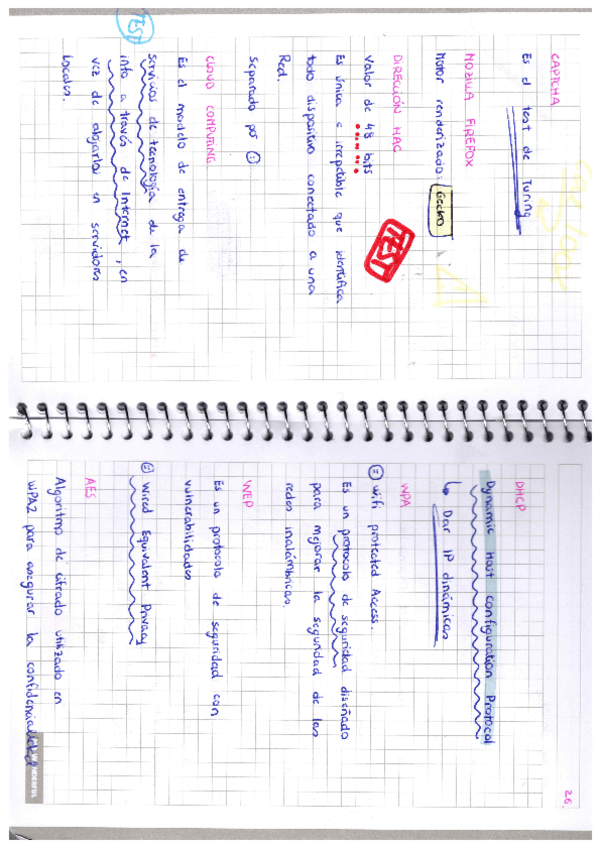 CAPTCHA
Es el test de Turing
MOZILLA FIREFOX
Motor renderizado: Gecko
DIRECCIÓN MAC
Valor de 48 bits
TEST
Es única e irrepetible que identifica
todo dispositivo conectado a una
Red.
separado por :
CLOUD COMPUTING
Es el modelo de entrega de
servicios de tecnología de la
info a través de Internet, en
vez de alojarlos en servidores
locales.
TEST
26.
DHCP
Dynamic Host Configuration Protocol
↳ Dar IP dinámicas
WPA
Wifi protected Access.
Es un protocolo de seguridad diseñado
para mejorar la seguridad de las
redes inalámbricas.
WEP
Es un protocolo de seguridad con
vulnerabilidades
Wired Equivalent Privacy
AES
Algoritmo de cifrado utilizado en
WPA2 para asegurar la confidencialidad